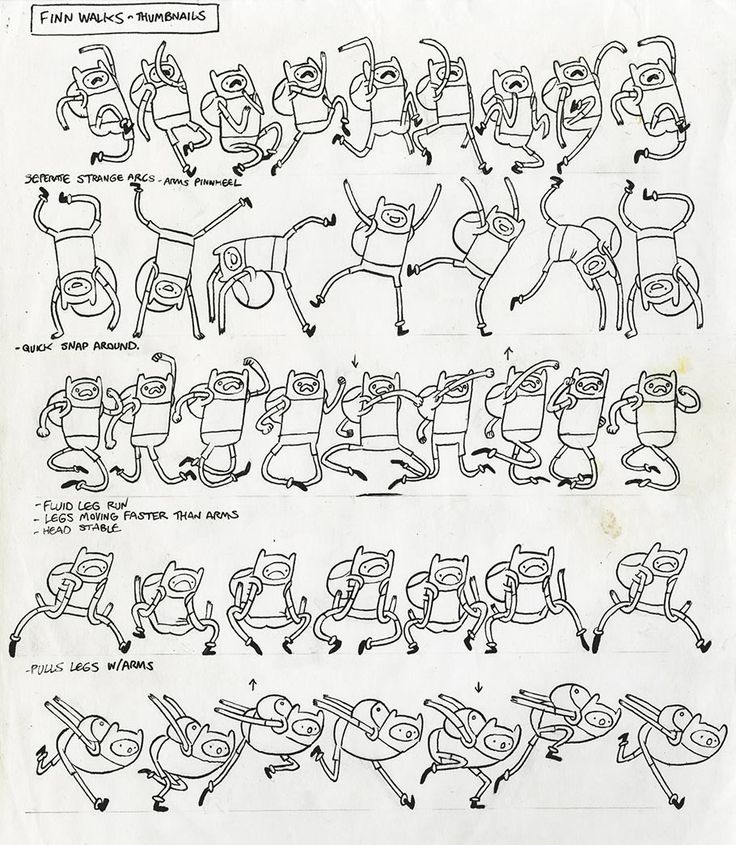 FINN WALKS - THUMBNAILS
SEPERATE STRANGE ARCS - ARMS PINNWHEEL
- QUICK SNAP AROUND.
- FLUID LEG RUN
- LEGS MOVING FASTER THAN ARMS
- HEAD STABLE
- PULLS LEGS W/ARMS